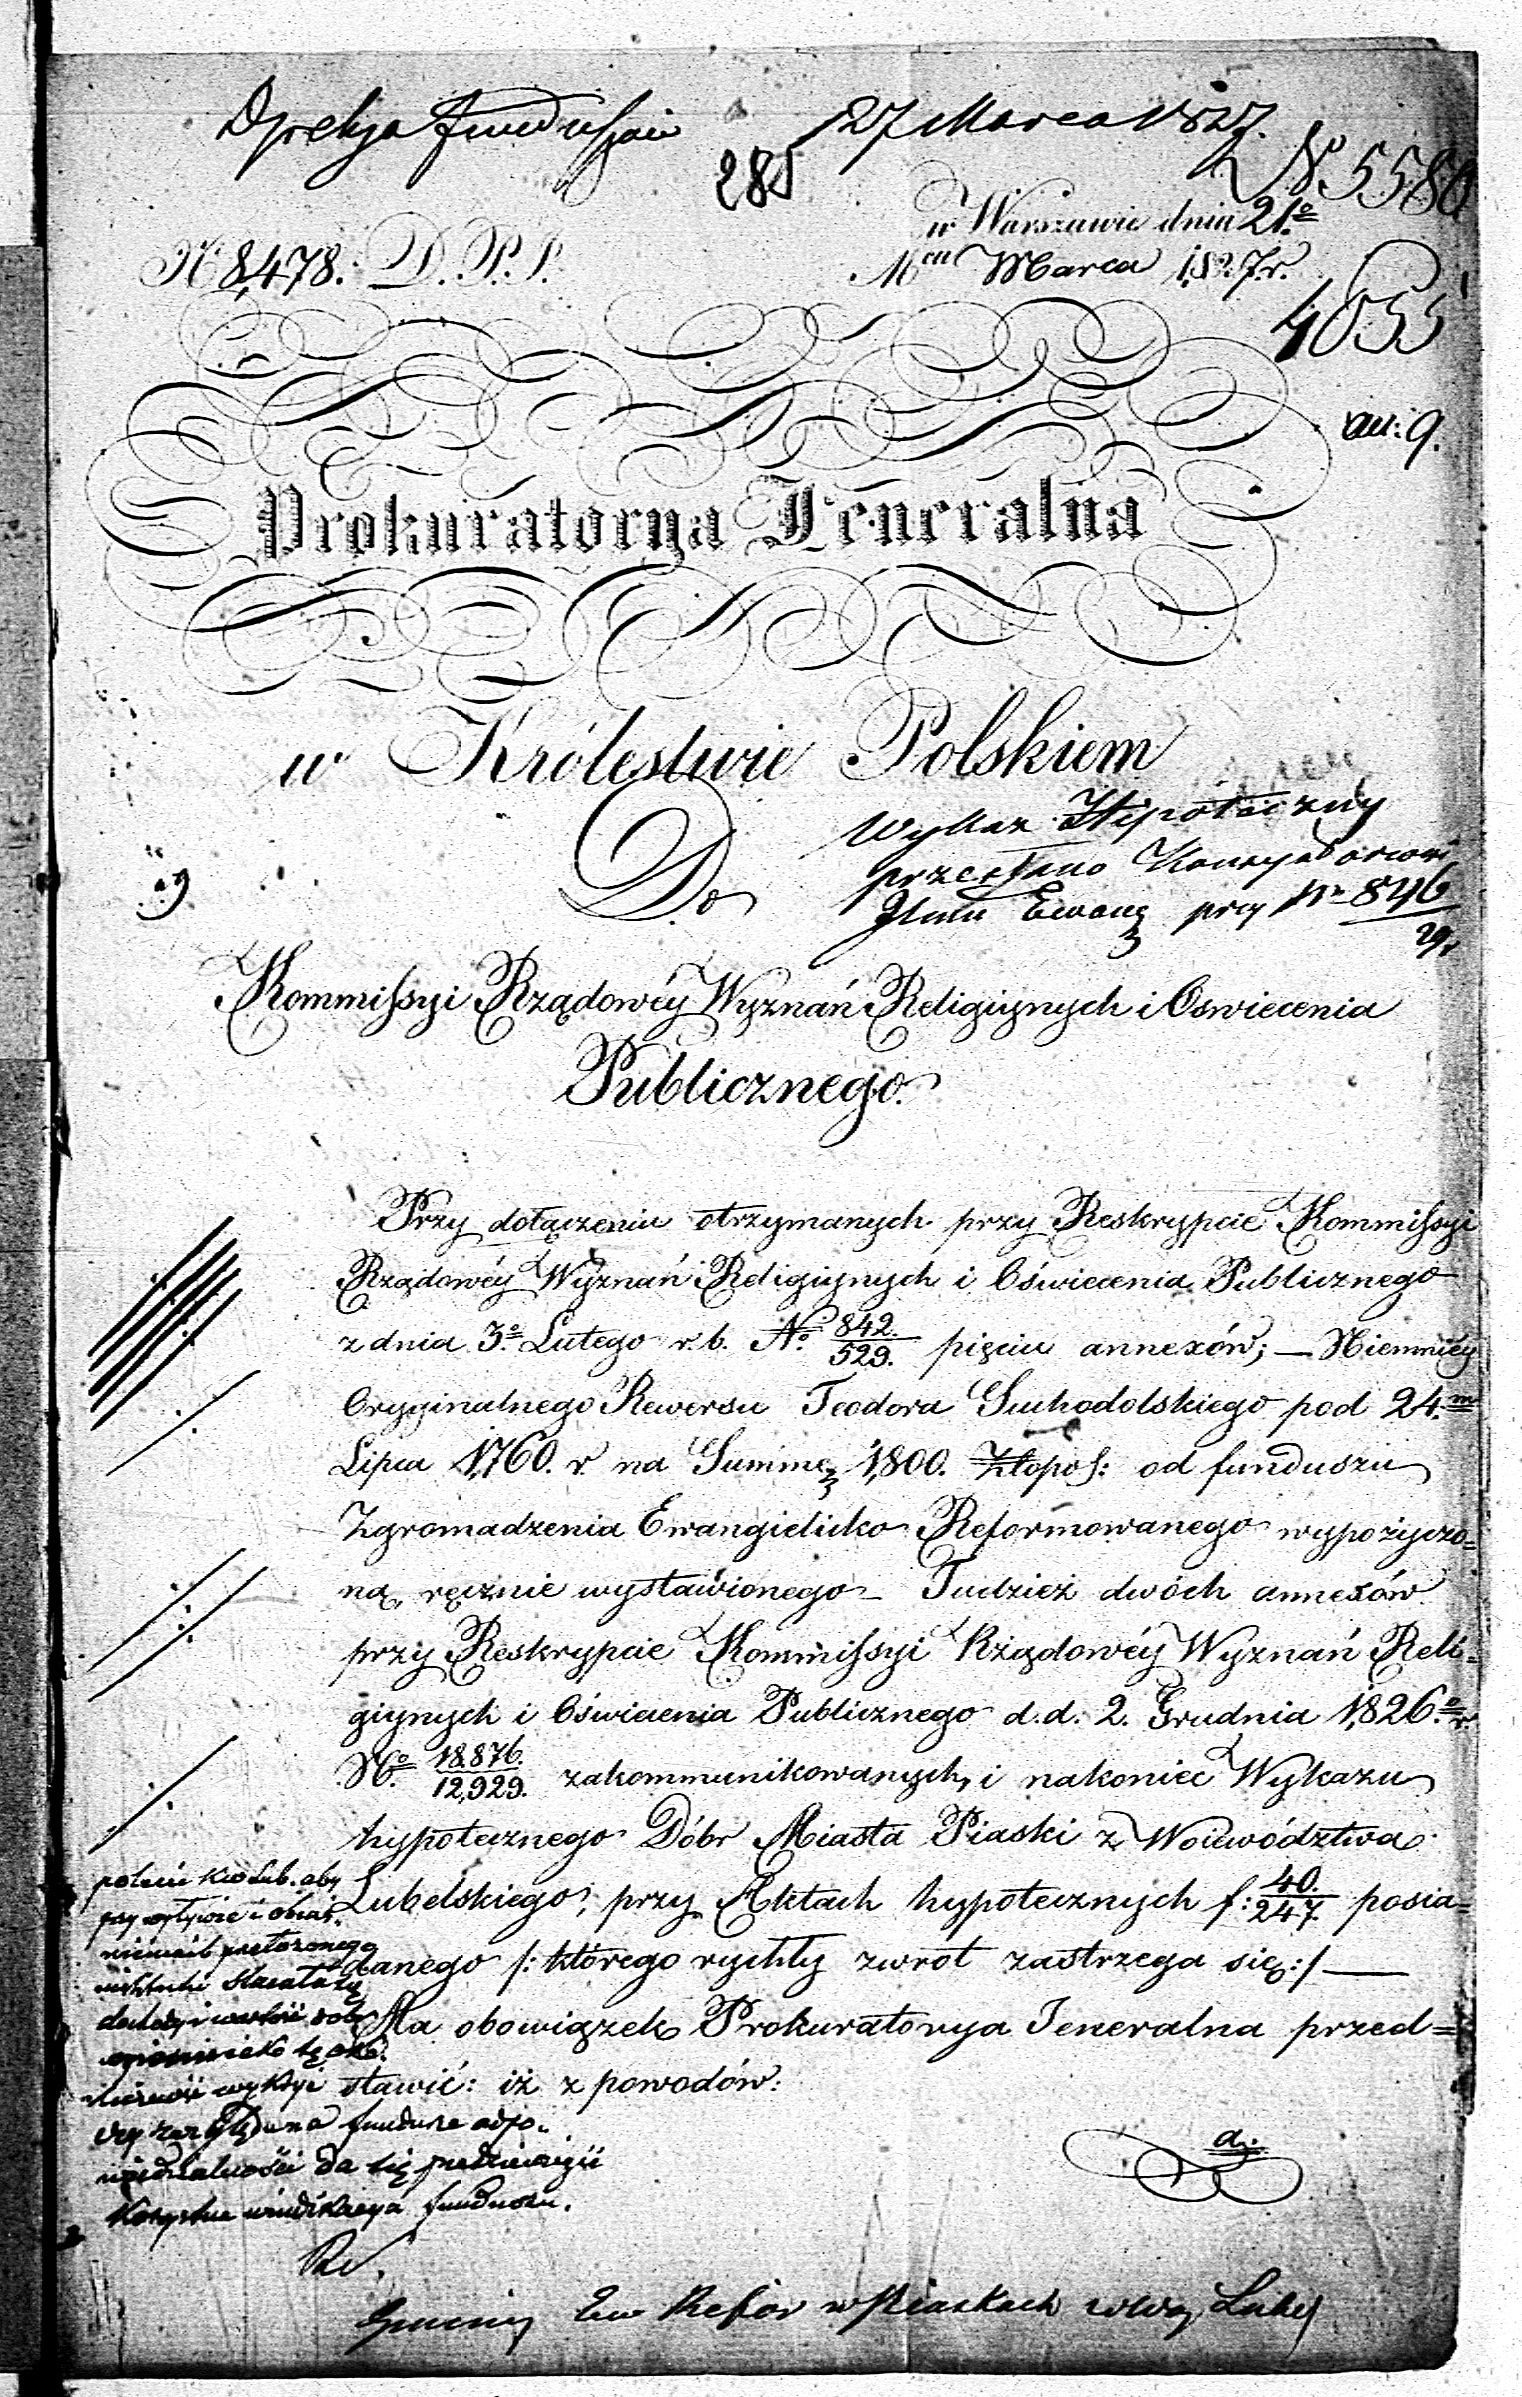 Dyrekcja funduszów 27 Marca 1827.
285
N 5580
w Warszawie dnia 21.º
Nº 8,478. D. P. J.
Mca Marca 1,827.r.
4055
an: 9.
Prokuratorya Jeneralna
w Królestwie Polskiem
Wykaz Hipoteczny
przesłano
Zboru Ewang przy Nr 846
29
Do
Kommissyi Rządowéy Wyznań Religiynych i Oswiecenia
Publicznego.
Przy dołączeniu otrzymanych przy Reskrypcie Kommissyi
Rządowéy Wyznań Religiynych i Oświecenia Publicznego
z dnia 3º Lutego r. b. Nº 842./529. pięciu annexów; — Niemniéy
Oryginalnego Rewersu Teodora Suchodolskiego pod 24.m
Lipca 1,760. r. na Summę 1,800. Złopol: od funduszu
Zgromadzenia Ewangielicko Reformowanego wypożyczo=
ną, ręcznie wystawionego — Tudzież dwóch annexów
przy Reskrypcie Kommissyi Rządowéy Wyznań Reli=
giynych i Oświecenia Publicznego d. d. 2. Grudnia 1,826.º r.
Nº 18.876./12,929. zakommunikowanych, i nakoniec Wykazu
hypotecznego Dóbr Miasta Piaski z Woiewództwa
Lubelskiego, przy Aktach hypotecznych f: 40./247. posia=
danego /: którego rychły zwrot zastrzega się :/ —
Ma obowiązek Prokuratorya Jeneralna przed=
stawić: iż z powodów:
polecić Kwo Lub. aby
przełożonego
fundusze odpo=
wiedzialności da się przedsięwziąć
Korzystna windikacya funduszu.
Gminy Ew Refor w Piaskach wWoj. Lubel